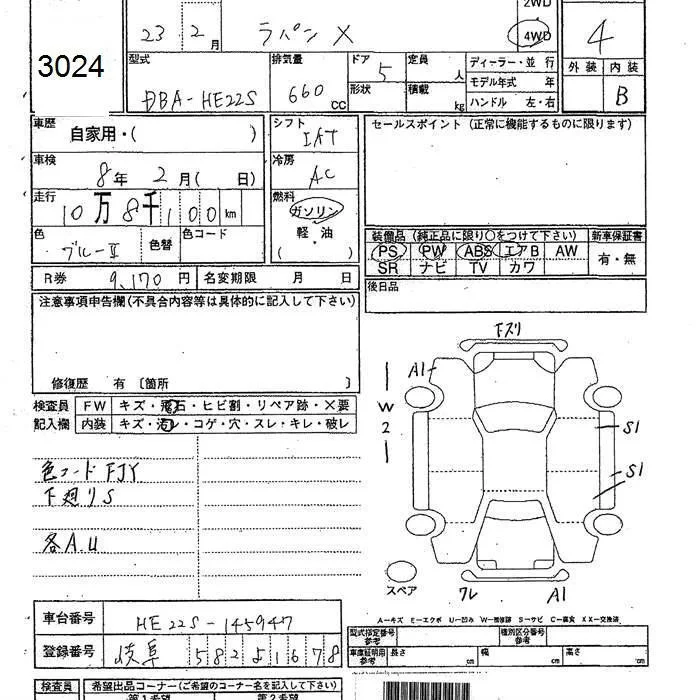 2WD
23 2月 ラパン X 4WD 4
3024
型式 排気量 ドア 定員 ディーラー・並行 外装 内装
DBA-HE22S 660CC 5 人 モデル年式 年 B
形状 積載 kg ハンドル 左・右
車歴 自家用・( ) シフト IAT セールスポイント（正常に機能するものに限ります）
車検 8年 2月( 日) 冷房 AC
走行 10万8千100km 燃料 ガソリン
軽・油
( )
色 ブルーII 色替 色コード
装備品（純正品に限り○をつけて下さい） 新車保証書
PS PW ABS エアB AW 有・無
SR ナビ TV カワ
R券 9,170円 名変期限 月 日 後日品
注意事項申告欄（不具合内容等は具体的に記入して下さい）
修復歴 有 〔箇所 〕
下ズリ
A1
W2
S1
S1
検査員 FW キズ・飛石・ヒビ割・リペア跡・X要
記入欄 内装 キズ・汚レ・コゲ・穴・スレ・キレ・破レ
色コード FJY
下廻りS
各A.U
スペア ワレ A1
A－キズ E－エクボ U－凹み W－補修跡 S－サビ C－腐食 XX－交換済
車台番号 HE22S-145947
登録番号 岐阜 582 う1678
型式指定番号 参考 種別区分番号 参考
車庫証明用 参考 長さ cm 幅 cm 高さ cm
検査員 希望出品コーナー（ご希望のコーナー名を記入して下さい）
第1希望 第2希望